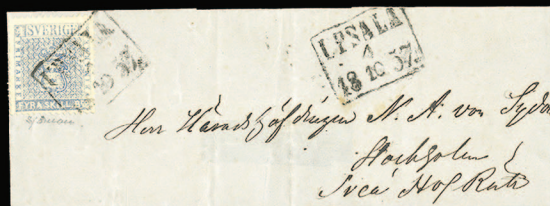 SVERIGE
FYRA SKILL. Bco
UPSALA
1
18 10 57.
Herr Häradshöfdingen N. A. von Sydow
Stockholm
Svea Hof Rätt